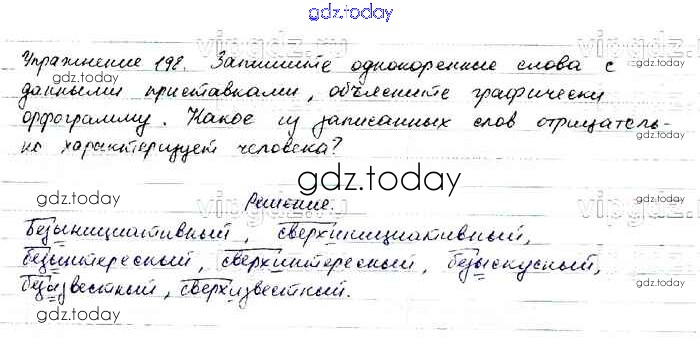 gdz.today
Упражнение 198. Запишите однокоренные слова с
gdz.today
данными приставками, объясните графически
gdz.today
орфограмму. Какое из записанных слов отрицатель-
но характеризует человека?
gdz.today
gdz.today
Решение.
gdz.today
Безынициативный, сверхинициативный,
безынтересный, сверхинтересный, безыскусный,
gdz.today
безызвестный, сверхизвестный.
gdz.today
gdz.today